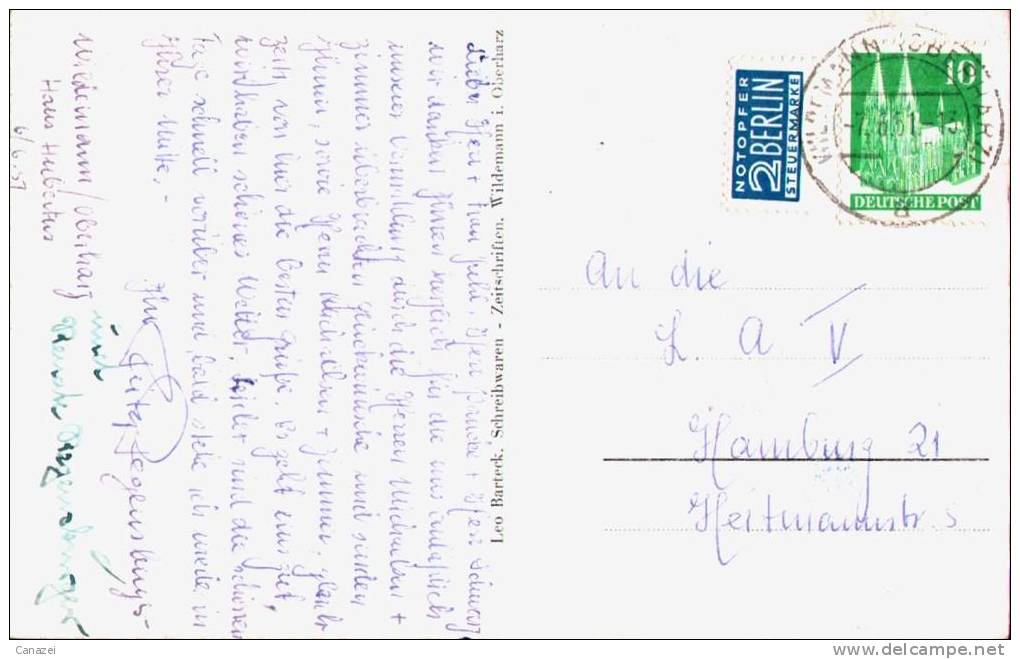 Wildemann/Oberharz
Haus Hubertus
6/6.51
Liebe Herr + Frau Juhl, Herr + Herr Schwarz
wir danken Ihnen herzlich für die uns anläßlich
unserer Vermählung durch die Herren Michaelsen +
Zimmer überbrachten Glückwünsche und senden
Ihnen, sowie Herrn Michaelsen + Zimmer,
zeit von hier die besten Grüße. Es geht uns gut,
wir haben schönes Wetter, leider sind die schönen
Tage schnell vorüber und bald stehe ich wieder in
Ihrer Mitte.-
Ihr
und
Leo Barteck, Schreibwaren - Zeitschriften, Wildemann i. Oberharz
NOTOPFER
2 BERLIN
STEUERMARKE
10
DEUTSCHE POST
WILDEMANN (OBERHARZ)
-7.6.51.-12
a
An die
L A V
Hamburg 21
Heitmannstr. 5
Canazei
delcampe.net